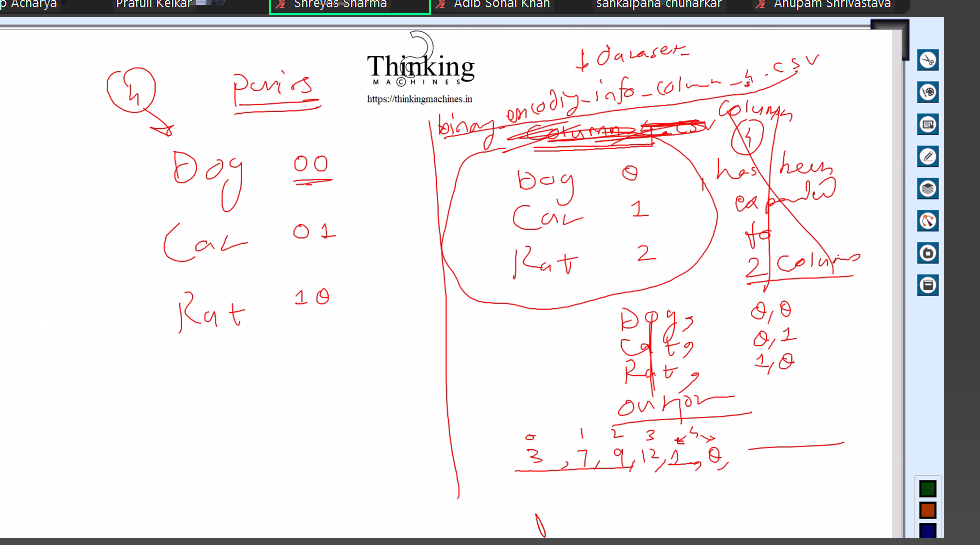 p Acharya
Prafull Kelkar
Shreyas Sharma
Adib Sohal Khan
sankalpana chunarkar
Anupam Shrivastava
Thinking
MACHINES
https://thinkingmachines.in
4
Dog 00
Cat 01
Rat 10
dataset
binary_encoding_info_column_4.csv
column 4.csv
Dog 0
Cat 1
Rat 2
Column
4
has been
expanded
to
2 columns
Dog, 0,0
Cat, 0,1
Rat, 1,0
0 1 2 3 4
3, 7, 9, 12, 1, 0,